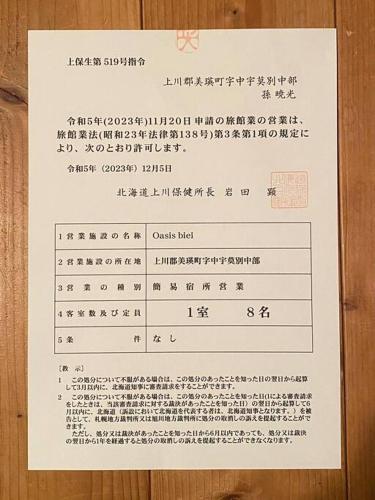 上保生第519号指令
上川郡美瑛町字中宇莫別中部
孫 暁光
令和5年(2023年)11月20日申請の旅館業の営業は、
旅館業法(昭和23年法律第138号)第3条第1項の規定に
より、次のとおり許可します。
令和5年（2023年）12月5日
北海道上川保健所長 岩田 顕
1 営業施設の名称 Oasis biei
2 営業施設の所在地 上川郡美瑛町字中宇莫別中部
3 営業の種別 簡易宿所営業
4 客室数及び定員 1室 8名
5 条件 なし
〔教 示〕
1 この処分について不服がある場合は、この処分のあったことを知った日の翌日から起算
して3月以内に、北海道知事に審査請求をすることができます。
2 この処分について不服がある場合は、この処分のあったことを知った日(1による審査請求
をしたときは、当該審査請求に対する裁決があったことを知った日)の翌日から起算して6
月以内に、北海道（訴訟において北海道を代表する者は、北海道知事となります。）を被
告として、札幌地方裁判所又は旭川地方裁判所に処分の取消しの訴えを提起することがで
きます。
ただし、処分又は裁決があったことを知った日から6月以内であっても、処分又は裁決
の翌日から1年を経過すると処分の取消しの訴えを提起することができなくなります。